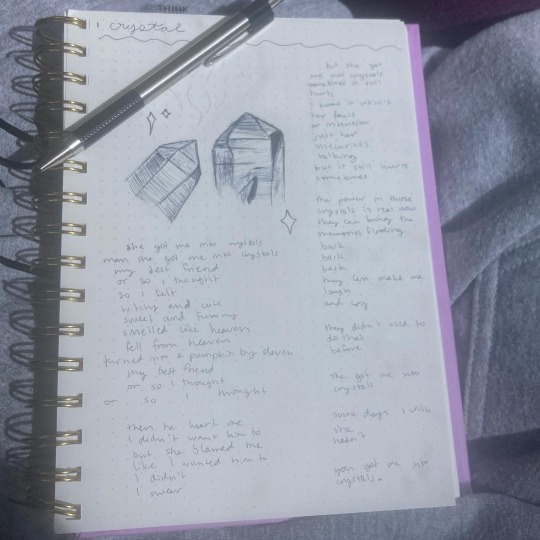 THINK
crystal
she got me into crystals
man she got me into crystals
my best friend
or so i thought
so i felt
witchy and cute
sweet and funny
smelled like heaven
fell from heaven
turned into a pumpkin by eleven
my best friend
or so i thought
or so i thought
then he hurt me
i didn't want him to
but she blamed me
like i wanted him to
i didn't
i swear
but she got
me into crystals
sometimes it still
hurts
i know it wasn't
her fault
or intention
just her
insecurities
talking
but it still hurts
sometimes
the power in those
crystals is real now
they can bring the
memories flooding
back
back
back
they can make me
laugh
and cry
they didn't used to
do that
before
she got me into
crystals
some days i wish
she
hadn't
you got me into
crystals.